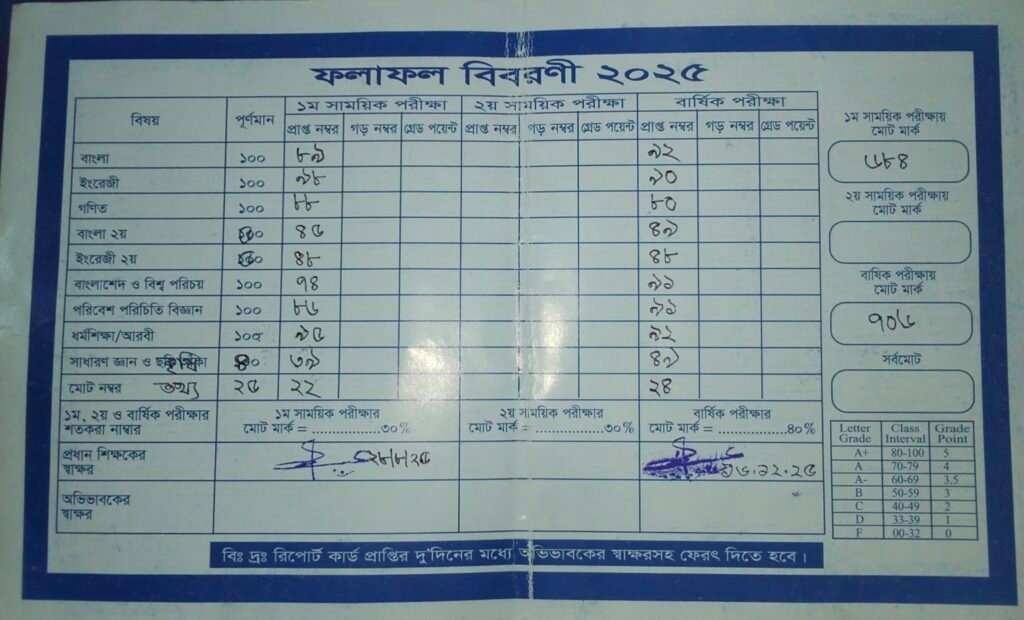 ফলাফল বিবরণী ২০২৫
বিষয় পূর্ণমান ১ম সাময়িক পরীক্ষা ২য় সাময়িক পরীক্ষা বার্ষিক পরীক্ষা
প্রাপ্ত নম্বর গড় নম্বর গ্রেড পয়েন্ট প্রাপ্ত নম্বর গড় নম্বর গ্রেড পয়েন্ট প্রাপ্ত নম্বর গড় নম্বর গ্রেড পয়েন্ট
বাংলা ১০০ ৮৯ ৯২
ইংরেজী ১০০ ৯৮ ৯০
গণিত ১০০ ৮৮ ৮০
বাংলা ২য় ৪৫ ৪৯
ইংরেজী ২য় ৪৮ ৪৮
বাংলাশেদ ও বিশ্ব পরিচয় ১০০ ৭৪ ৯১
পরিবেশ পরিচিতি বিজ্ঞান ১০০ ৮৬ ৯১
ধর্মশিক্ষা/আরবী ১০০ ৯৫ ৯২
সাধারণ জ্ঞান ও ৩৯ ৪৯
মোট নম্বর তথ্য ২৫ ২২ ২৪
১ম, ২য় ও বার্ষিক পরীক্ষার
শতকরা নাম্বার
১ম সাময়িক পরীক্ষার
মোট মার্ক = ..................৩০%
২য় সাময়িক পরীক্ষার
মোট মার্ক = ..................৩০%
বার্ষিক পরীক্ষার
মোট মার্ক = ..................৪০%
প্রধান শিক্ষকের
স্বাক্ষর
২৮/৮/২৫
১৬.১২.২৫
অভিভাবকের
স্বাক্ষর
১ম সাময়িক পরীক্ষায়
মোট মার্ক
৬৮৪
২য় সাময়িক পরীক্ষায়
মোট মার্ক
বার্ষিক পরীক্ষায়
মোট মার্ক
৭০৬
সর্বমোট
Letter Grade Class Interval Grade Point
A+ 80-100 5
A 70-79 4
A- 60-69 3.5
B 50-59 3
C 40-49 2
D 33-39 1
F 00-32 0
বিঃ দ্রঃ রিপোর্ট কার্ড প্রাপ্তির দু'দিনের মধ্যে অভিভাবকের স্বাক্ষরসহ ফেরৎ দিতে হবে।